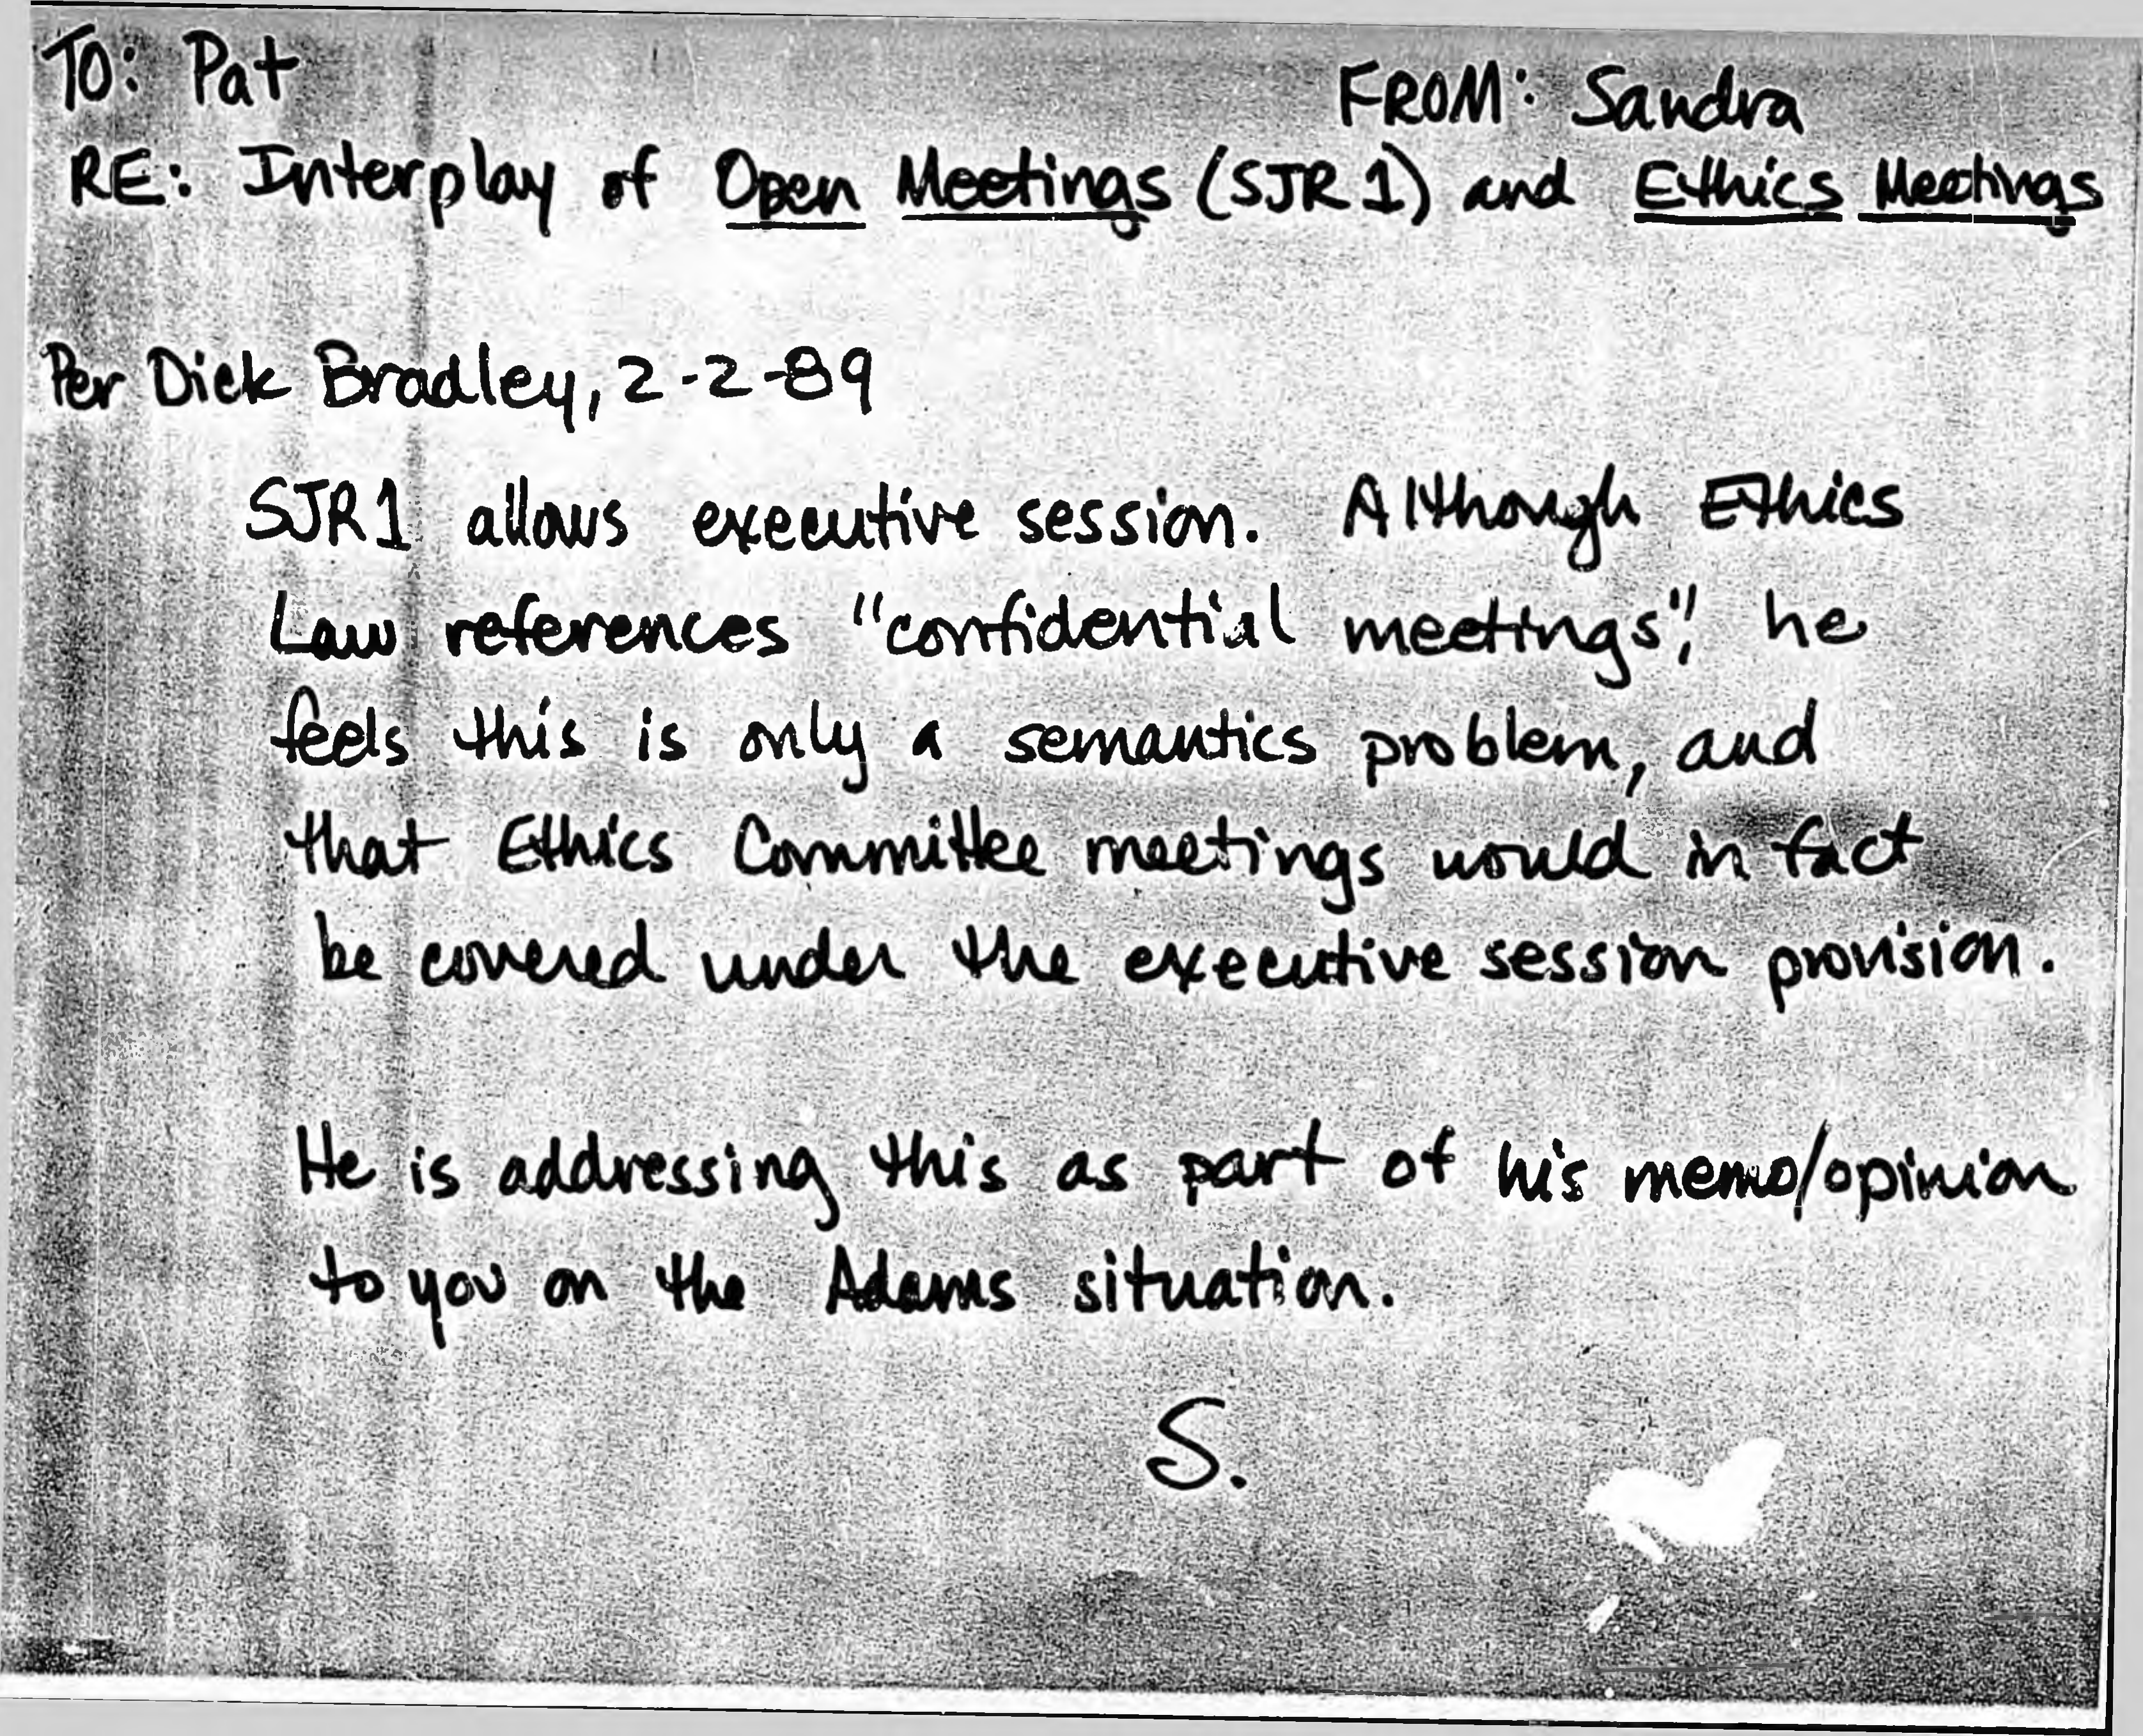 TO: Pat FROM: Sandra
RE: Interplay of Open Meetings (SJR 1) and Ethics Meetings
Per Dick Bradley, 2-2-89
SJR1 allows executive session. Although Ethics
Law references "confidential meetings", he
feels this is only a semantics problem, and
that Ethics Committee meetings would in fact
be covered under the executive session provision.
He is addressing this as part of his memo/opinion
to you on the Adams situation.
S.